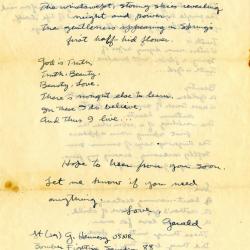 The windswept, stormy skies revealing
might and power.
The gentleness appearing in Spring's
first half hid flower.
God is Truth.
Truth, Beauty.
Beauty, Love.
There is nought else to learn.
In these I do believe
And thus I live.
Hope to hear from you soon.
Let me know if you need
anything.
Love,
Gerald
G. Hennery USNR
Bombing Fighting Squadron 88